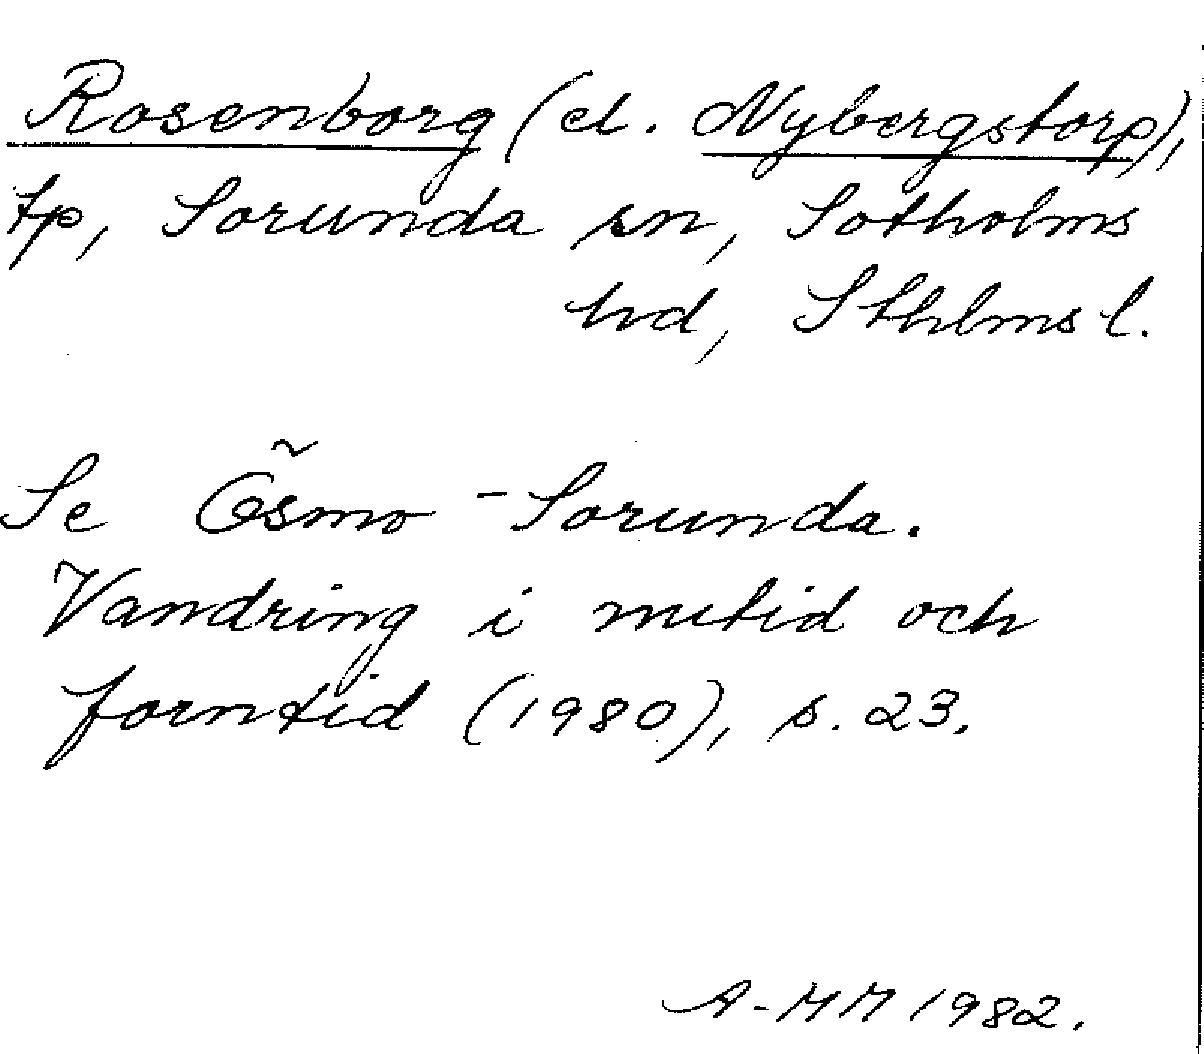 Rosenborg (el. Nybergstorp),
tp, Sorunda sn, Sotholms
hd, Sthlms l.
Se Ösmo - Sorunda.
Vandring i nutid och
forntid (1980), s. 23.
A-MM 1982.